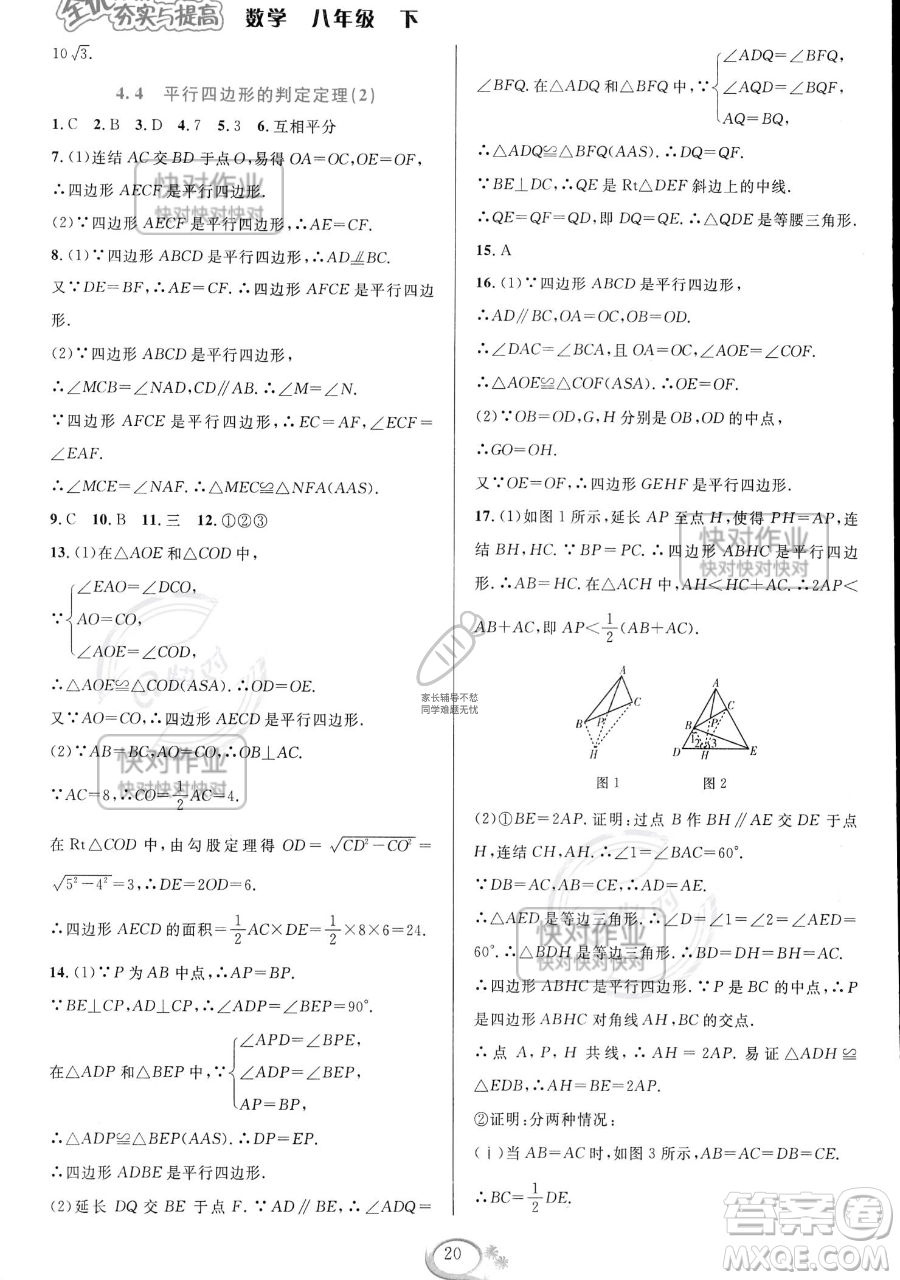 全优
夯实与提高 数学 八年级 下
10√3.
4.4 平行四边形的判定定理(2)
1.C 2.B 3.D 4.7 5.3 6.互相平分
7.(1)连结 AC 交 BD 于点 O,易得 OA=OC,OE=OF,
∴四边形 AECF 是平行四边形.
(2)∵四边形 AECF 是平行四边形,∴AE=CF.
8.(1)∵四边形 ABCD 是平行四边形,∴AD⫽BC.
又∵DE=BF,∴AE=CF.∴四边形 AFCE 是平行四边
形.
(2)∵四边形 ABCD 是平行四边形,
∴∠MCB=∠NAD,CD∥AB.∴∠M=∠N.
∵四边形 AFCE 是平行四边形,∴EC=AF,∠ECF=
∠EAF.
∴∠MCE=∠NAF,∴△MEC≌△NFA(AAS).
9.C 10.B 11.三 12.①②③
13.(1)在△AOE 和△COD 中,
∠EAO=∠DCO,
∵{AO=CO,
∠AOE=∠COD,
∴△AOE≌△COD(ASA).∴OD=OE.
又∵AO=CO,∴四边形 AECD 是平行四边形.
(2)∵AB=BC,AO=CO,∴OB⊥AC.
∵AC=8,∴CO=1/2 AC=4.
在 Rt△COD 中,由勾股定理得 OD=√(CD²-CO²)=
√(5²-4²)=3,∴DE=2OD=6.
∴四边形 AECD 的面积=1/2 AC×DE=1/2×8×6=24.
14.(1)∵P 为 AB 中点,∴AP=BP.
∵BE⊥CP,AD⊥CP,∴∠ADP=∠BEP=90°.
∠APD=∠BPE,
在△ADP 和△BEP 中,{∠ADP=∠BEP,
AP=BP,
∴△ADP≌△BEP(AAS).∴DP=EP.
∴四边形 ADBE 是平行四边形.
(2)延长 DQ 交 BE 于点 F.∵AD∥BE,∴∠ADQ=
∠ADQ=∠BFQ,
∠BFQ.在△ADQ 和△BFQ 中,{∠DQA=∠BQF,
AQ=BQ,
∴△ADQ≌△BFQ(AAS).∴DQ=QF.
∵BE⊥DC,∴QE 是 Rt△DEF 斜边上的中线.
∴QE=QF=QD,即 DQ=QE.∴△QDE 是等腰三角形.
15.A
16.(1)∵四边形 ABCD 是平行四边形,
∴AD∥BC,OA=OC,OB=OD.
∴∠DAC=∠BCA,且 OA=OC,∠AOE=∠COF.
∴△AOE≌△COF(ASA).∴OE=OF.
(2)∵OB=OD,G,H 分别是 OB,OD 的中点,
∴GO=OH.
又∵OE=OF,∴四边形 GEHF 是平行四边形.
17.(1)如图 1 所示,延长 AP 至点 H,使得 PH=AP,连
结 BH,HC.∵BP=PC,∴四边形 ABHC 是平行四边
形.∴AB=HC.在△ACH 中,AH<HC+AC.∴2AP<
AB+AC,即 AP<1/2(AB+AC).
A
B P C
H
图 1
A
B P C
1 2 3
D H E
图 2
(2)①BE=2AP.证明:过点 B 作 BH∥AE 交 DE 于点
H,连结 CH,AH.∴∠1=∠BAC=60°.
∵DB=AC,AB=CE,∴AD=AE.
∴△AED 是等边三角形.∴∠D=∠1=∠2=∠AED=
60°.∴△BDH 是等边三角形.∴BD=DH=BH=AC.
∴四边形 ABHC 是平行四边形.∵P 是 BC 的中点,∴P
是四边形 ABHC 对角线 AH,BC 的交点.
∴点 A,P,H 共线.∴AH=2AP.易证△ADH≌
△EDB,∴AH=BE=2AP.
②证明:分两种情况:
(ⅰ)当 AB=AC 时,如图 3 所示,∴AB=AC=DB=CE.
∴BC=1/2 DE.
快对作业
快对快对快对
快对作业
快对快对快对
快对作业
快对快对快对
快对作业
快对快对快对
家长辅导不愁
同学难题无忧
20
答案圈
MXQE.COM